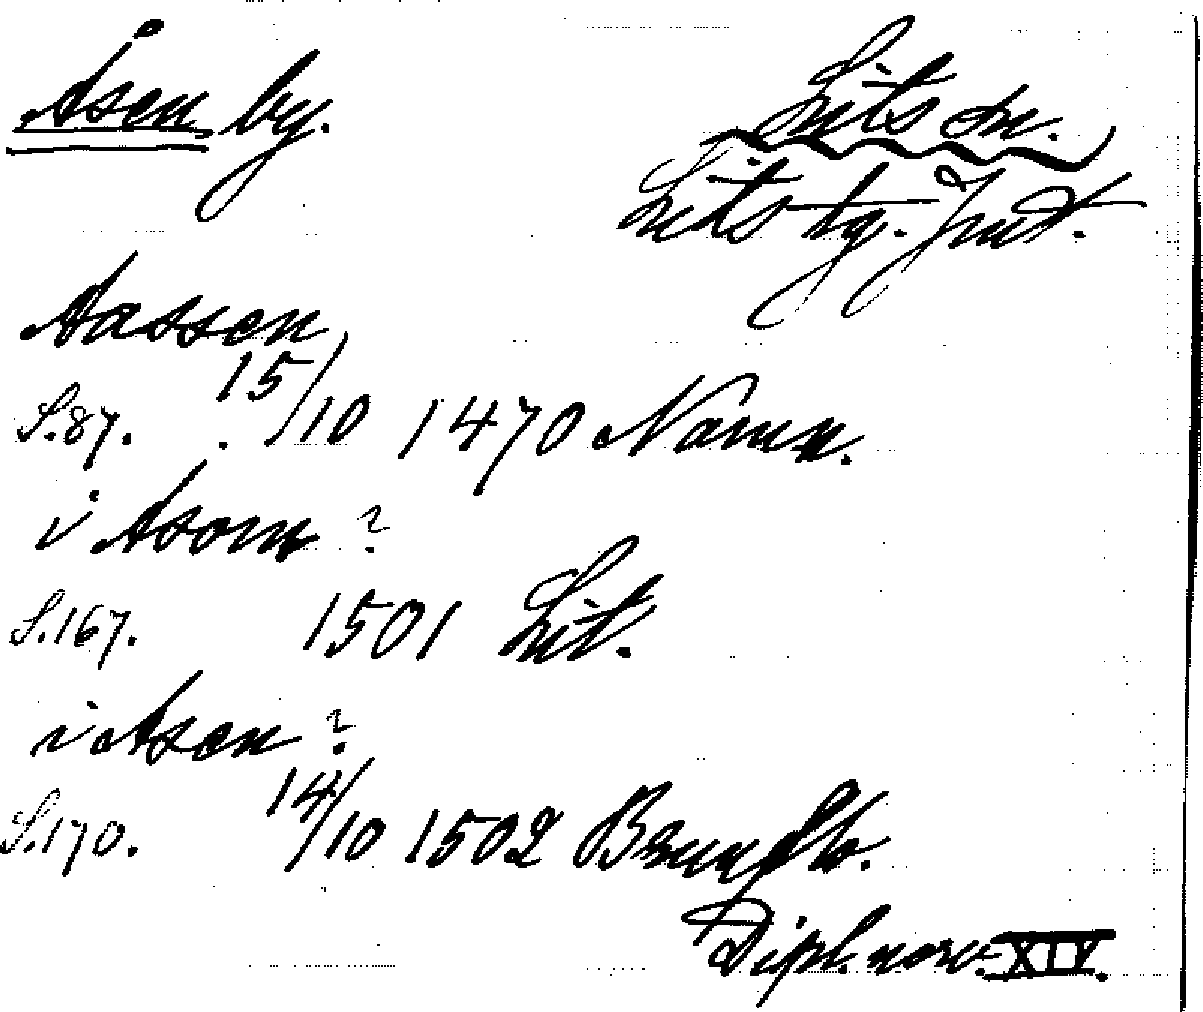 Åsen by.
Lits sn.
Lits tg. Jmt.
Aassen
S.87. 15/10 1470 Namn.
i Asom ?
S.167. 1501 Lit.
i Asen ?
S.170. 14/10 1502 Brunflo.
Dipl. norv. XIV.